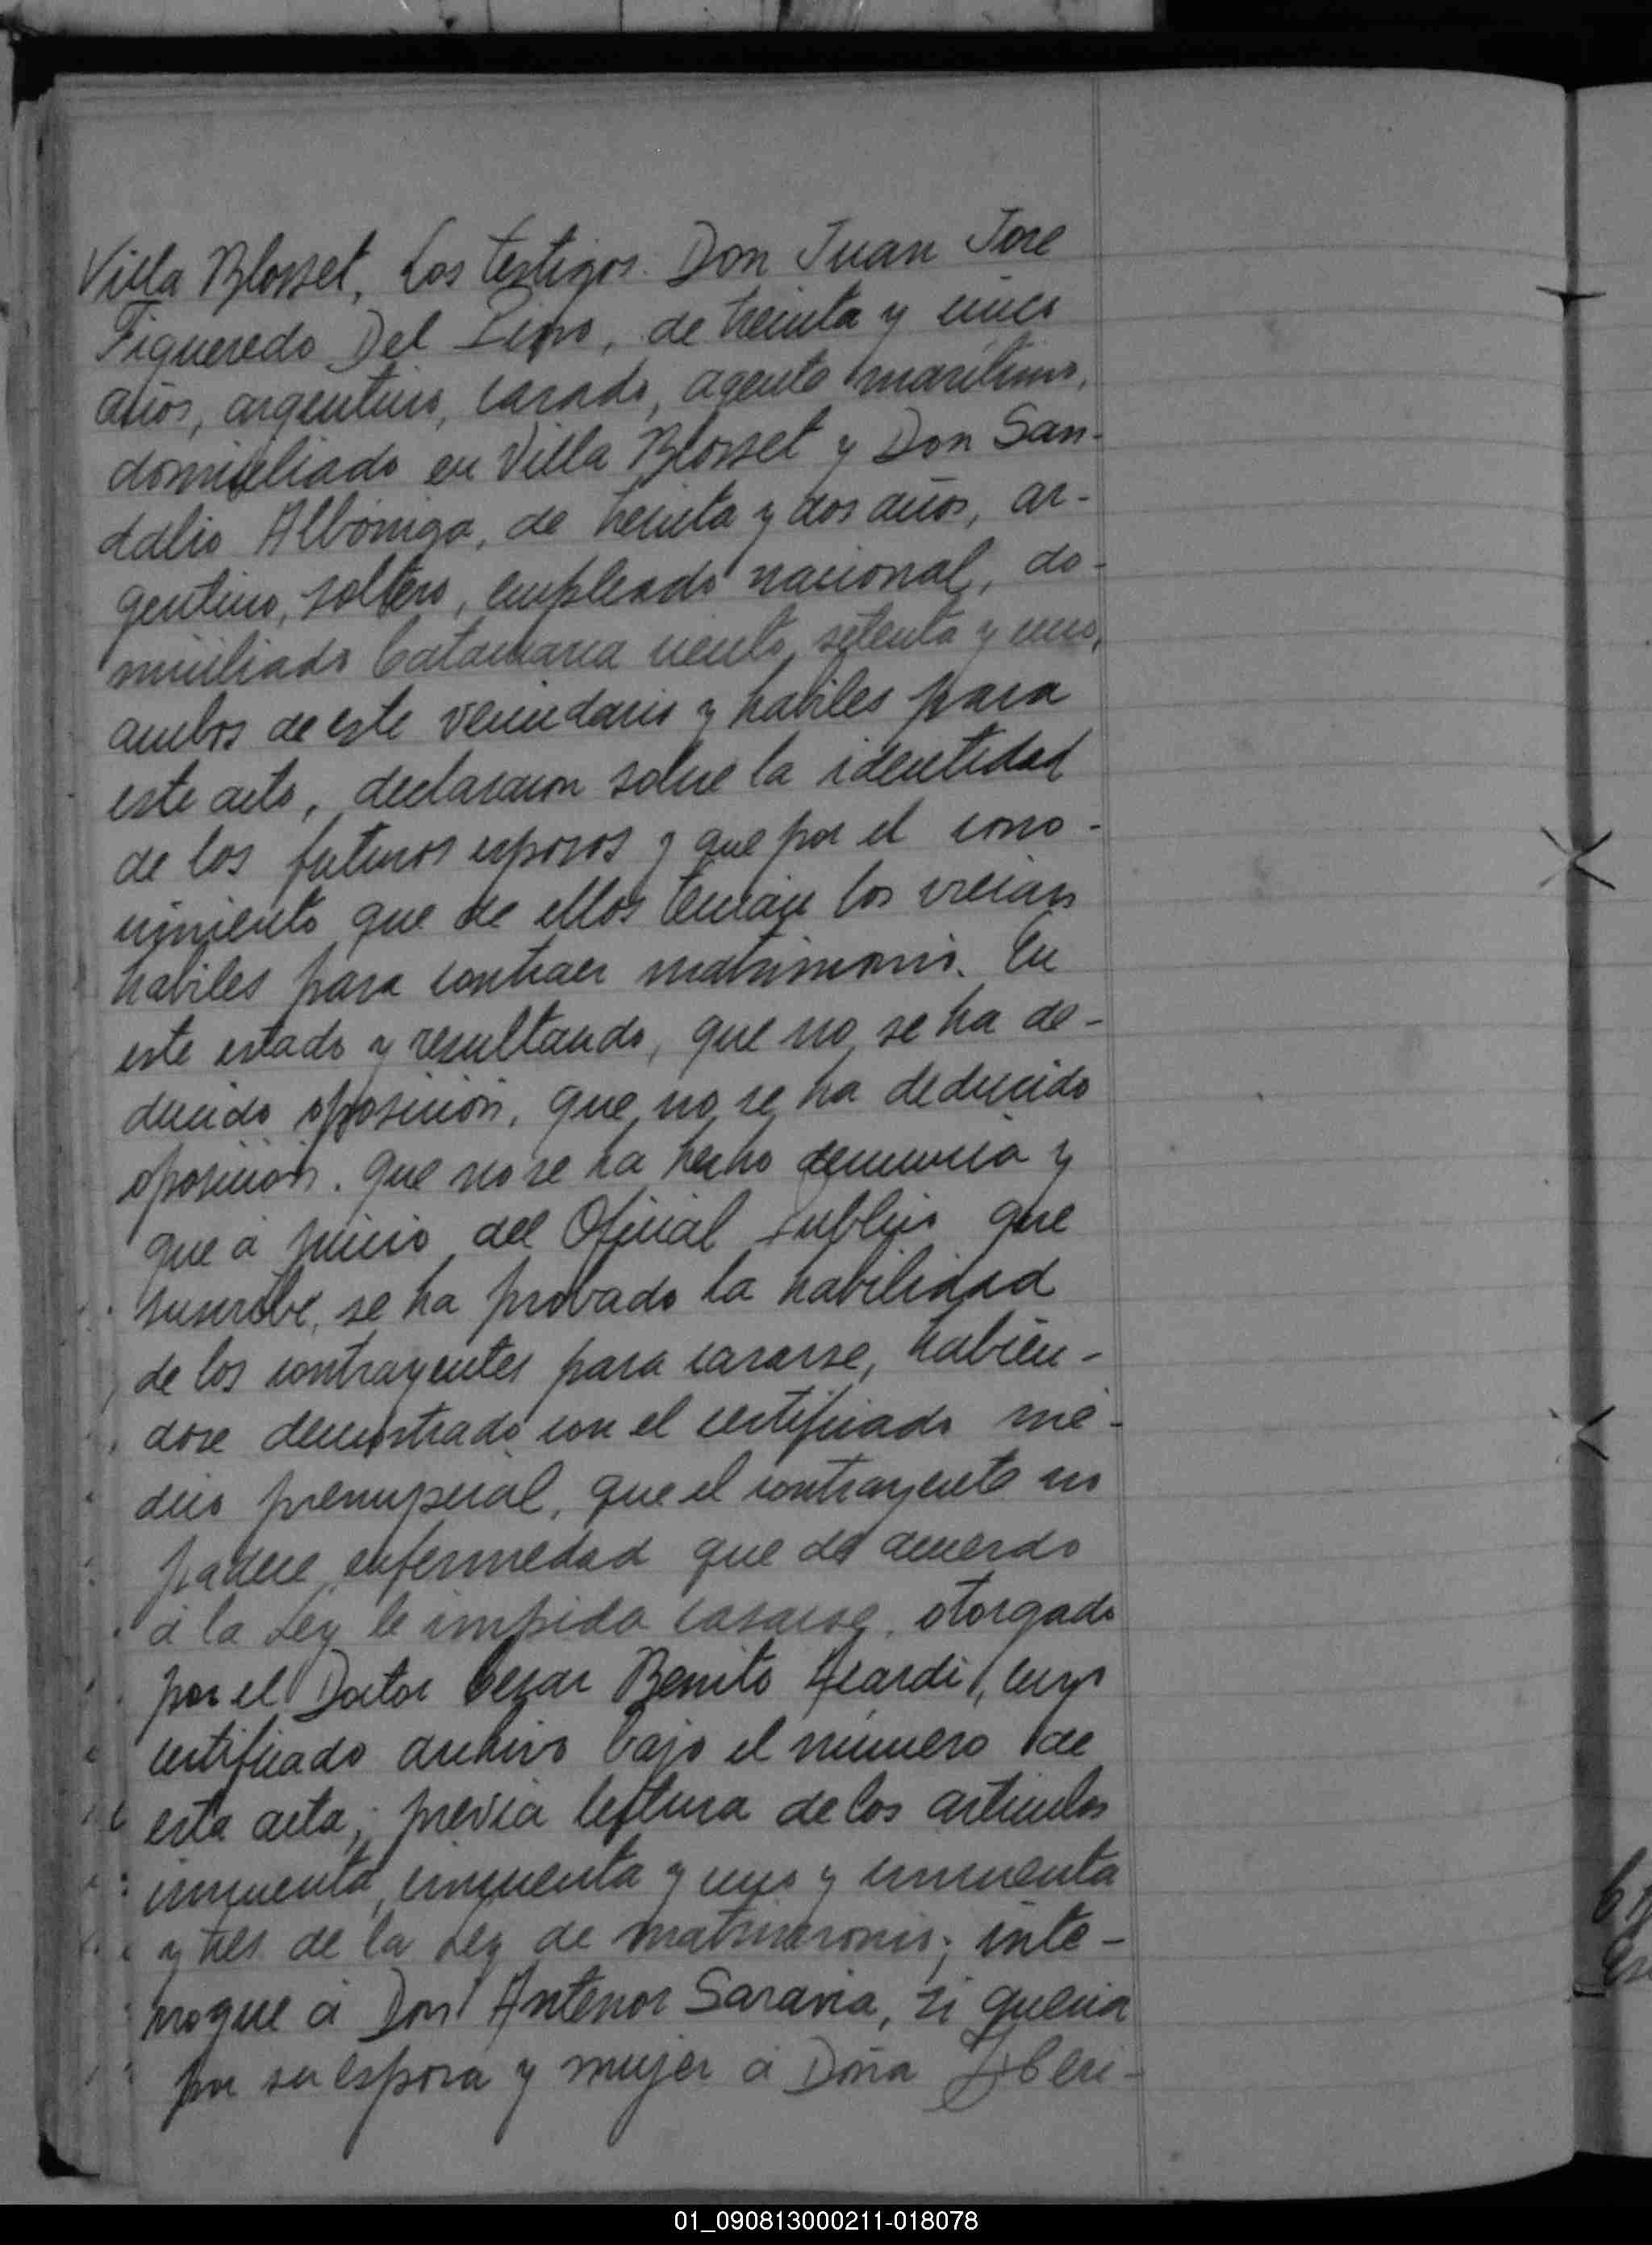 Villa Blosset, Los testigos. Don Juan Jose
Figueredo Del Pino, de treinta y cinco
años, argentino, casado, agente maritimo,
domiciliado en Villa Blosset y Don San-
dalio Albóniga, de treinta y dos años, ar-
gentino, soltero, empleado nacional, do-
miciliado Catamarca ciento setenta y uno,
ambos de este vecindario y habiles para
este acto, declararon sobre la identidad
de los futuros esposos y que por el cono-
cimiento que de ellos tenian los creian
habiles para contraer matrimonio. En
este estado y resultando, que no se ha de-
ducido oposición, que no se ha deducido
oposición. que no se ha hecho denuncia y
que á juicio del Oficial Publico que
suscribe, se ha probado la habilidad
de los contrayentes para casarse, habien-
dose demostrado con el certificado mé-
dico prenupcial, que el contrayente no
padece enfermedad que de acuerdo
á la Ley le impida casarse, otorgado
por el Doctor Cesar Benito cuyo
certificado archivo bajo el número de
esta acta; previa lectura de los articulos
cincuenta, cincuenta y uno y cincuenta
y tres de la Ley de matrimonio; inte-
rrogue á Don Antenor Saravia, si queria
por su esposa y mujer á Doña
01_090813000211-018078